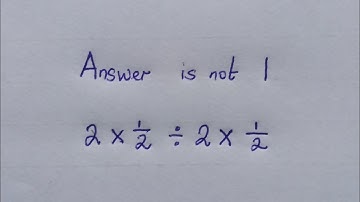 Answer is not 1
2 × 1/2 ÷ 2 × 1/2